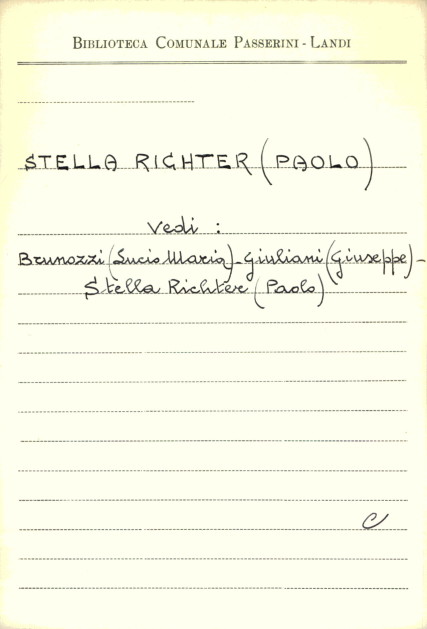 BIBLIOTECA COMUNALE PASSERINI - LANDI
STELLA RICHTER (PAOLO)
Vedi :
Brunozzi (Lucio Maria) - Giuliani (Giuseppe) -
Stella Richter (Paolo)
C